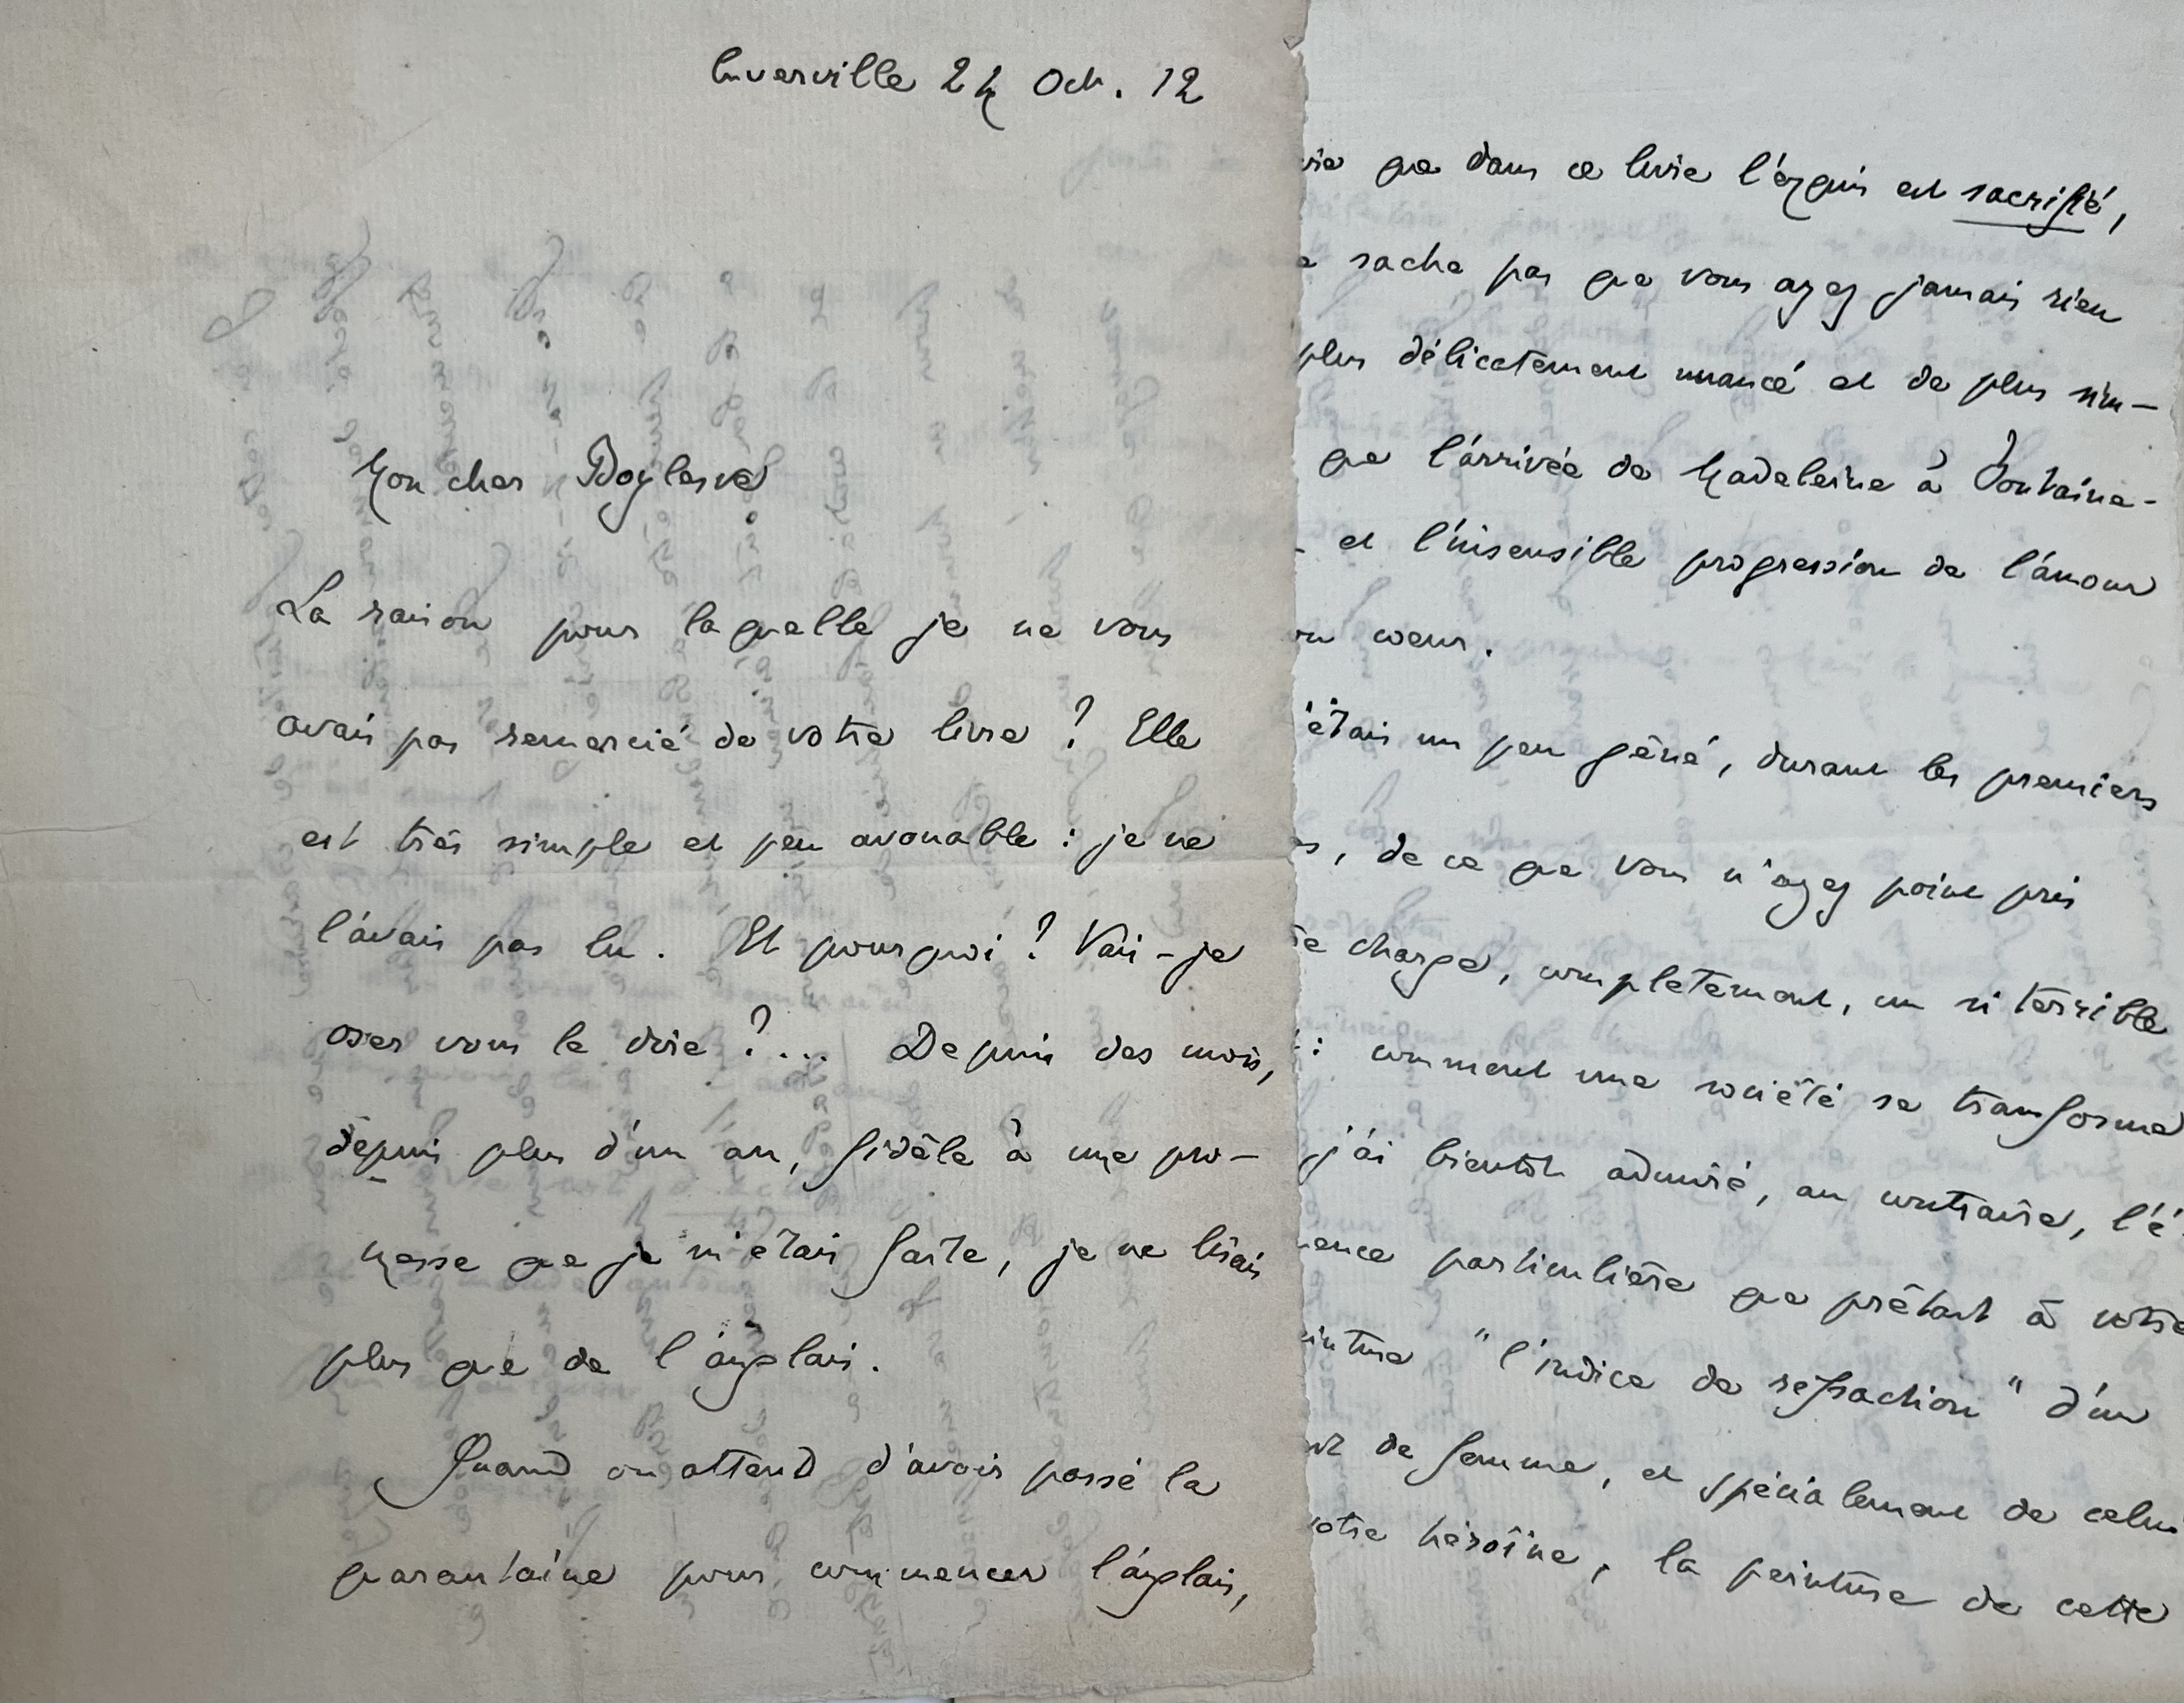 Cuverville 24 Oct. 12
Mon cher Boylesve
La raison pour laquelle je ne vous
avais pas remercié de votre livre ? Elle
est très simple et peu avouable : je ne
l'avais pas lu. Et pourquoi ? Vais-je
oser vous le dire ?... Depuis des mois,
depuis plus d'un an, fidèle à une pro-
messe que je m'étais faite, je ne lisais
plus que de l'anglais.
Quand on attend d'avoir passé la
quarantaine pour commencer l'anglais,
que dans ce livre l'exquis est sacrifié,
sache pas que vous ayez jamais rien
plus délicatement nuancé et de plus sim-
que l'arrivée de Madeleine à Fontaine-
et l'insensible progression de l'amour
cœur.
'étais un peu gêné, durant les premiers
, de ce que vous n'ayez point pris
charge, complètement, un si terrible
: comment une société se transforme
j'ai bientôt admiré, au contraire, l'é
ence particulière que prêtait à votre
einture "l'indice de réfraction" d'un
de femme, et spécialement de celui
votre héroïne, la peinture de cette